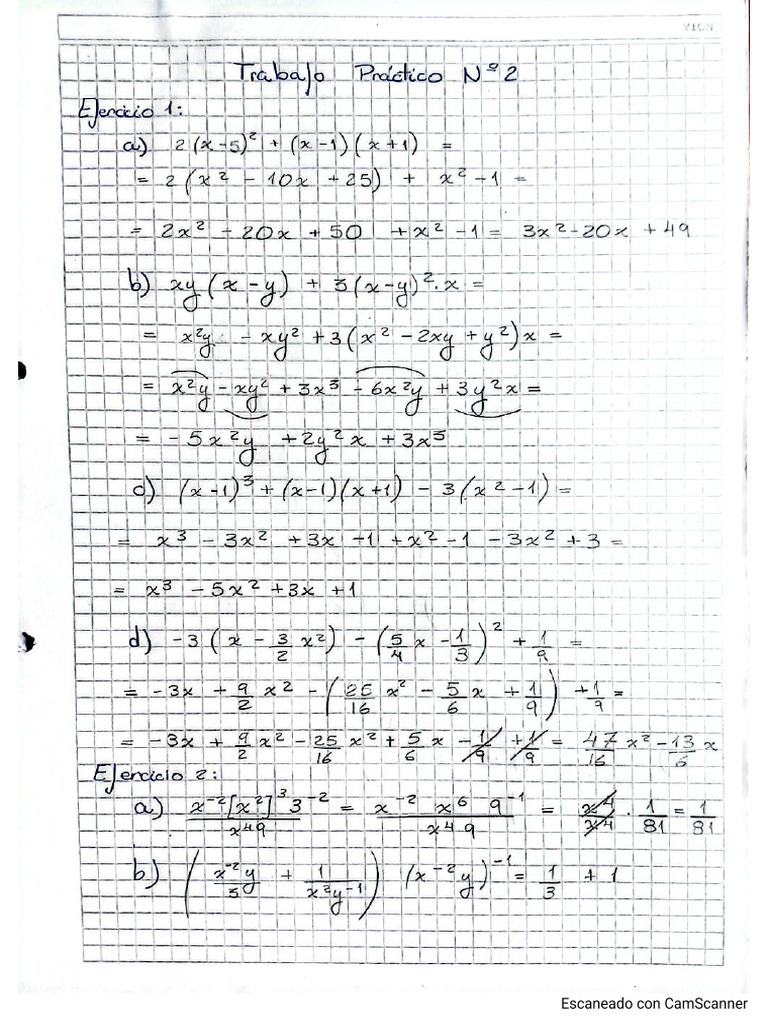 Trabajo Práctico Nº 2
Ejercicio 1:
a) 2(x-5)² + (x-1)(x+1) =
= 2(x² - 10x + 25) + x² - 1 =
= 2x² - 20x + 50 + x² - 1 = 3x² - 20x + 49
b) xy(x-y) + 3(x-y)²·x =
= x²y - xy² + 3(x² - 2xy + y²)x =
= x²y - xy² + 3x³ - 6x²y + 3y²x =
= -5x²y + 2y²x + 3x³
c) (x-1)³ + (x-1)(x+1) - 3(x²-1) =
= x³ - 3x² + 3x - 1 + x² - 1 - 3x² + 3 =
= x³ - 5x² + 3x + 1
d) -3(x - 3/2 x²) - (5/4 x - 1/3)² + 1/9 =
= -3x + 9/2 x² - (25/16 x² - 5/6 x + 1/9) + 1/9 =
= -3x + 9/2 x² - 25/16 x² + 5/6 x - 1/9 + 1/9 = 47/16 x² - 13/6 x
Ejercicio 2:
a) x⁻²[x²]³3⁻²/x⁴9 = x⁻² x⁶ 9⁻¹/x⁴ 9 = x⁴/x⁴ · 1/81 = 1/81
b) (x⁻²y/3 + 1/x²y⁻¹) (x⁻²y)⁻¹ = 1/3 + 1
Escaneado con CamScanner